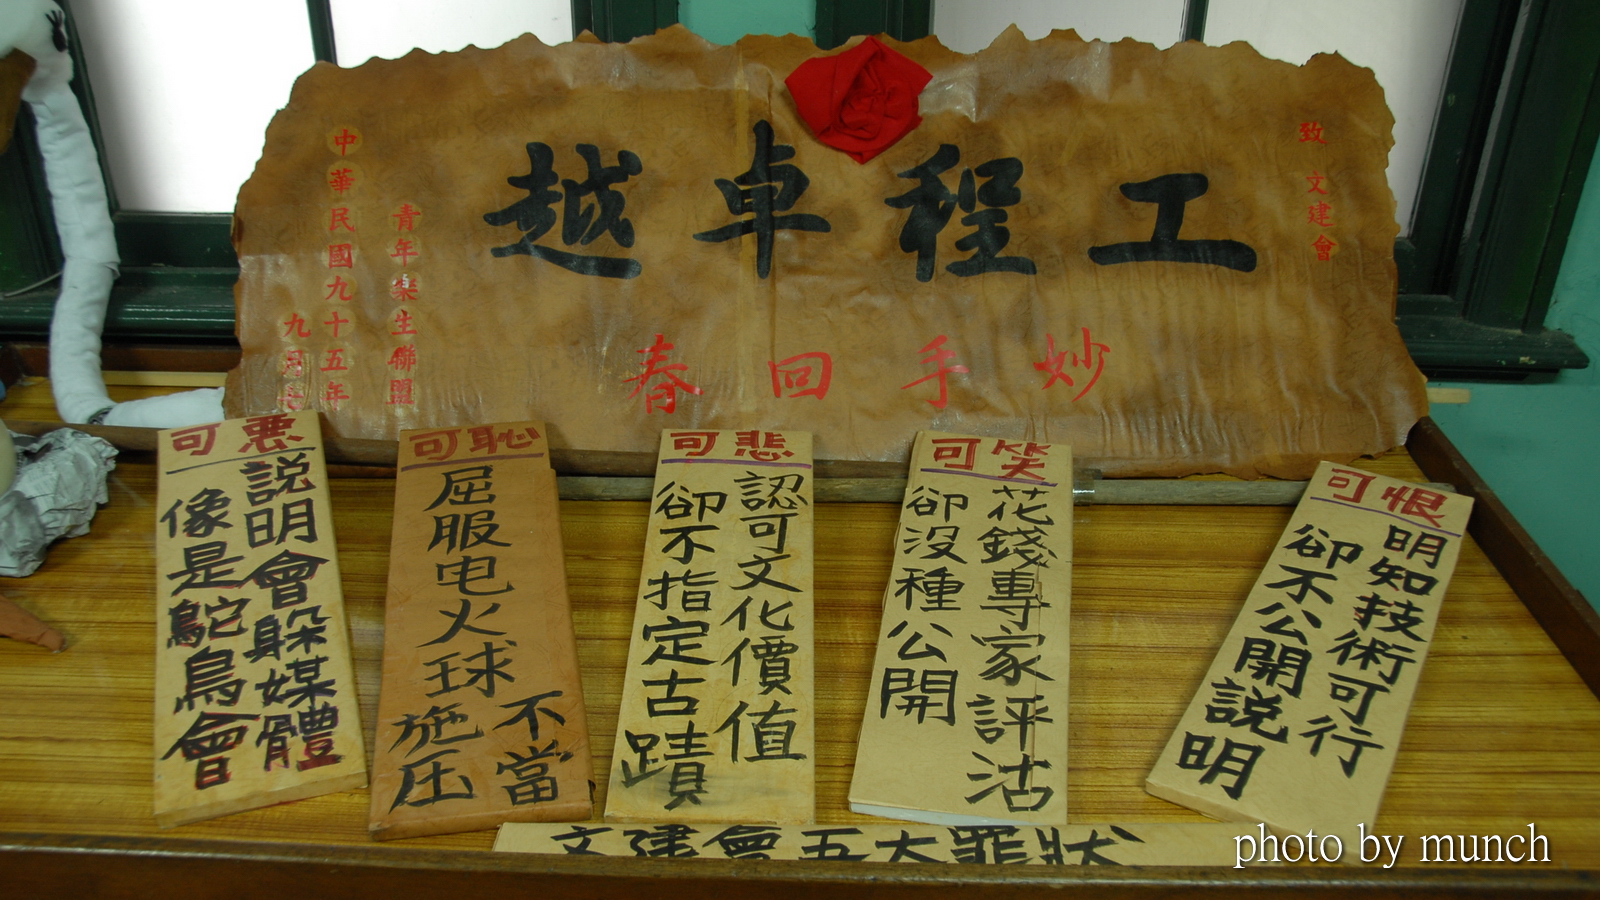 致 文建會
工程卓越
妙手回春
青年楽生聯盟
中華民國九十五年
九月
可恨
明知技術可行
卻不公開説明
可笑
花錢專家評沽
卻沒種公開
可悲
認可文化價值
卻不指定古蹟
可恥
屈服电火球
不當
施压
可悪
説明會躲媒體
像是鴕鳥會
文建會五大罪狀
photo by munch